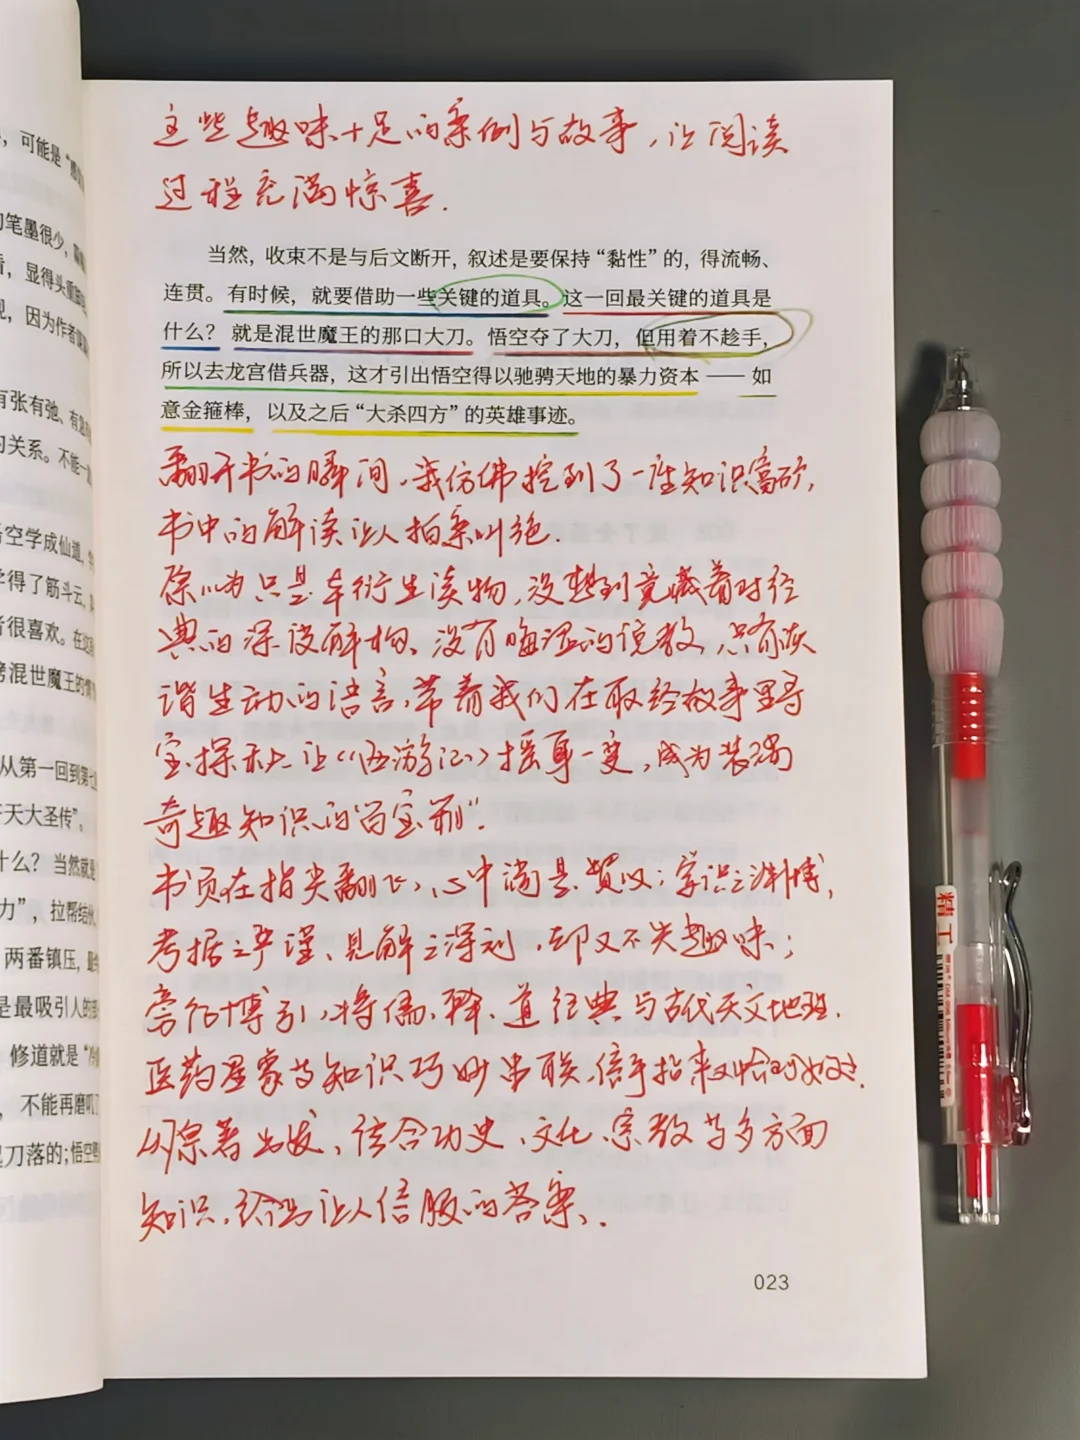 ，可能是“
的笔墨很少，
看，显得头重
现，因为作者
有张有弛、有急
的关系。不能一
悟空学成仙道，
学得了筋斗云、
者很喜欢。在这
榜混世魔王的情
从第一回到第七
齐天大圣传”。
什么？当然就是
力”，拉帮结伙
两番镇压，最
是最吸引人的
修道就是“冷
，不能再磨叽了
起刀落的；悟空
这些趣味十足的案例与故事，让阅读
过程充满惊喜.
当然，收束不是与后文断开，叙述是要保持“黏性”的，得流畅、
连贯。有时候，就要借助一些关键的道具。这一回最关键的道具是
什么？就是混世魔王的那口大刀。悟空夺了大刀，但用着不趁手，
所以去龙宫借兵器，这才引出悟空得以驰骋天地的暴力资本——如
意金箍棒，以及之后“大杀四方”的英雄事迹。
翻开书的瞬间，我仿佛挖到了一座知识富矿，
书中的解读让人拍案叫绝.
原以为只是本衍生读物，没想到竟藏着对经
典的深度解构、没有晦涩的说教，只有诙
谐生动的语言，带着我们在取经故事里寻
宝探秘、让《西游记》摇身一变，成为装满
奇趣知识的“百宝箱”.
书页在指尖翻飞，心中满是赞叹；学识之渊博，
考据之严谨、见解之深刻，却又不失趣味；
旁征博引，将儒、释、道经典与古代天文地理.
医药星象等知识巧妙串联，信手拈来又恰到好处.
从原著出发，结合历史、文化、宗教等多方面
知识，给出让人信服的答案、.
023
精工